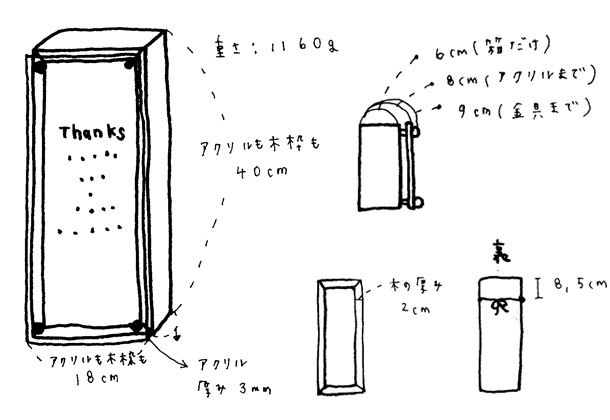 重さ：1160g
Thanks
アクリルも木枠も
40cm
アクリルも木枠も
18cm
アクリル
厚み 3mm
6cm(箱だけ)
8cm(アクリルまで)
9cm(金具まで)
木の厚み
2cm
裏
8,5cm